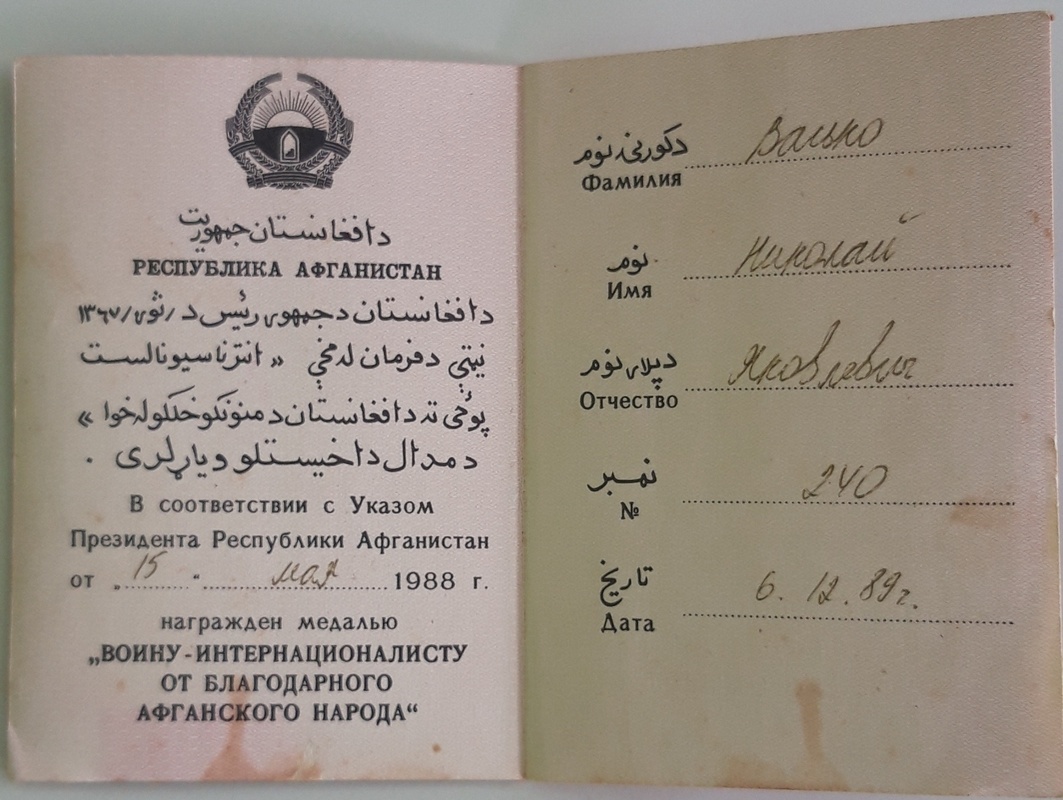 دافغانستان جمهوریت
РЕСПУБЛИКА АФГАНИСТАН
دافغانستان دجمهوری رئیس د /ثور/ ۱۳۶۷
نیټې دفرمان له مخې «انترناسیونالست
پوځی ته دافغانستان دمنونکو خلکو له خوا»
دمدال داخیستلو ویاړ لری .
В соответствии с Указом
Президента Республики Афганистан
от „ 15 “ мая 1988 г.
награжден медалью
„ВОИНУ-ИНТЕРНАЦИОНАЛИСТУ
ОТ БЛАГОДАРНОГО
АФГАНСКОГО НАРОДА“
دکورنۍ نوم
Фамилия
نوم
Имя Николай
دپلار نوم
Отчество Яковлевич
نمبر
№ 240
تاریخ
Дата 6. 12. 89г.